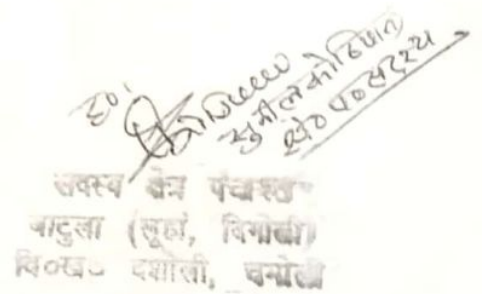 ह०
सुनील कोठियाल
क्षे० प० सदस्य
सदस्य क्षेत्र पंचायत
बाटुला (लूहां, दिगोली)
वि०ख० दशोली, चमोली